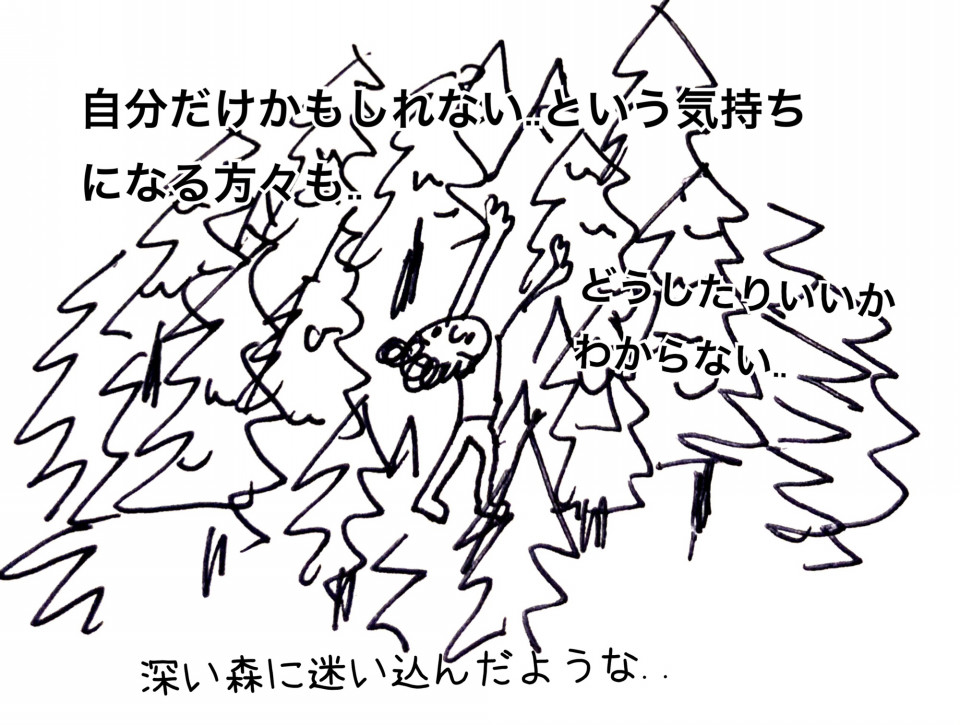 自分だけかもしれない..という気持ち
になる方々も..
どうしたりいいか
わからない..
深い森に迷い込んだような..